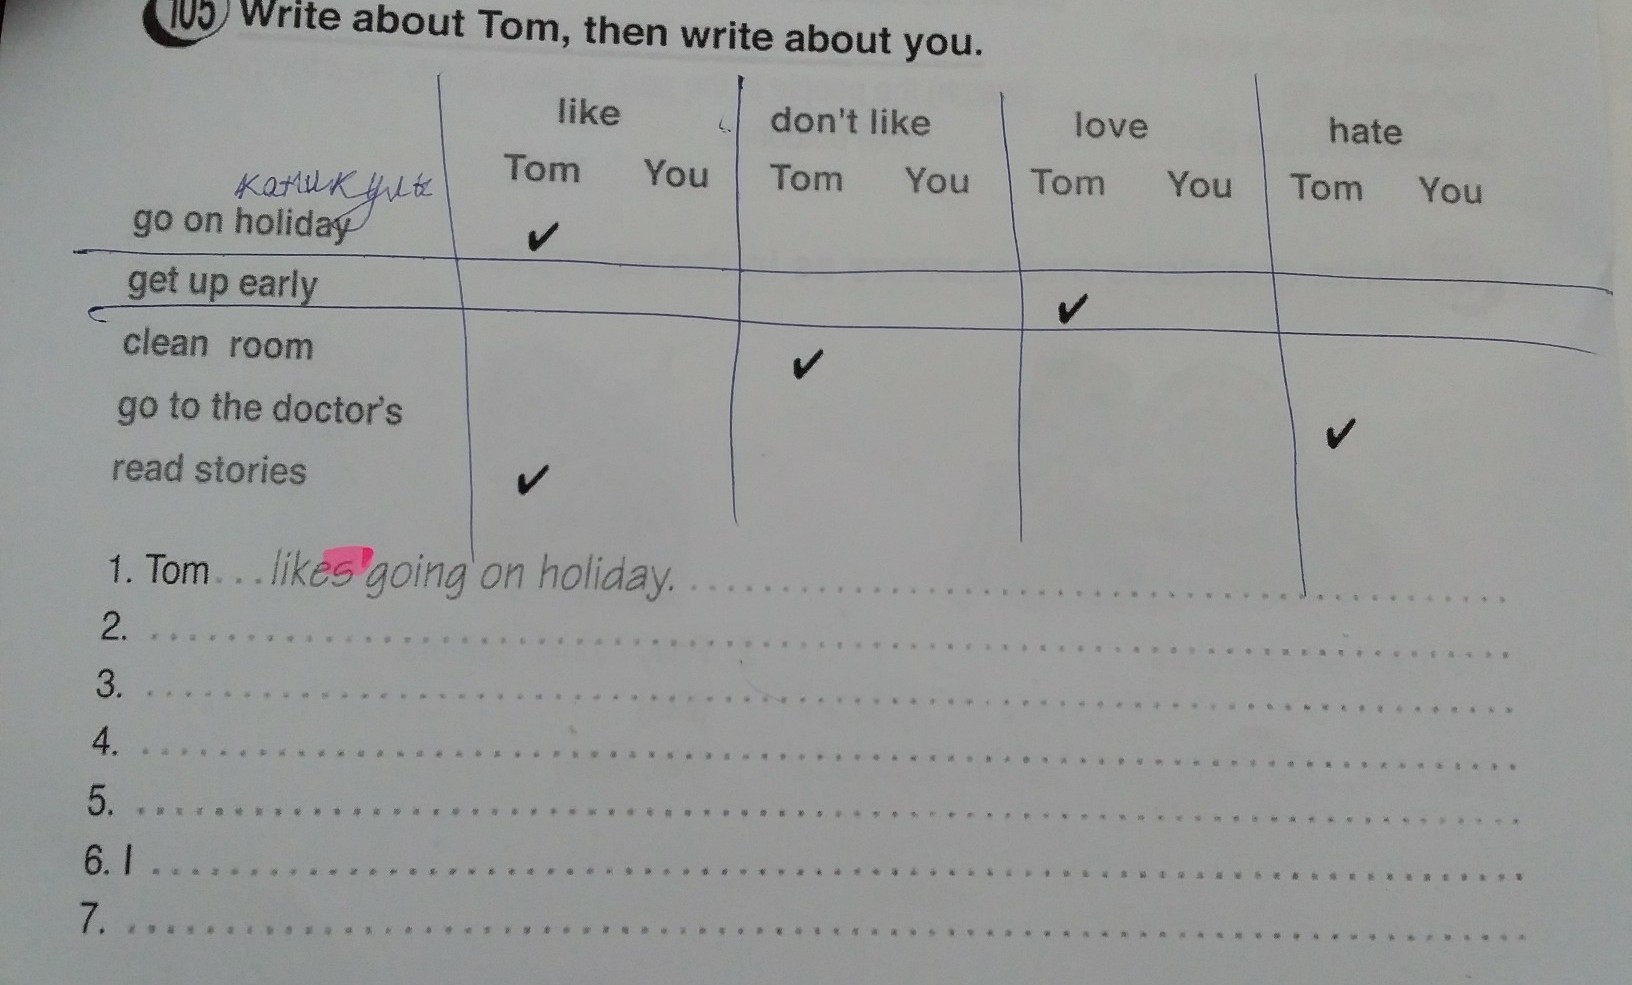 105 Write about Tom, then write about you.
like don't like love hate
Tom You Tom You Tom You Tom You
каникулы
go on holiday ✔
get up early ✔
clean room ✔
go to the doctor's ✔
read stories ✔
1. Tom ... likes going on holiday.
2.
3.
4.
5.
6. I
7.